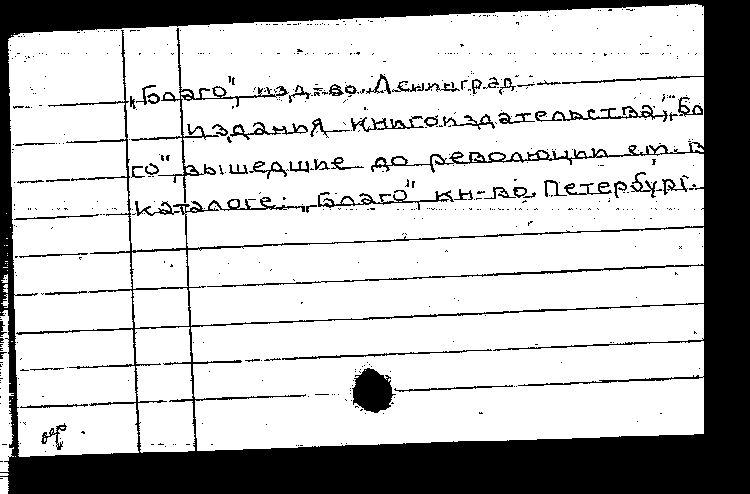 „Благо", изд-во. Ленинград
издания книгоиздательства „Бла
го", вышедшие до революции см. в
каталоге: „Благо", кн-во. Петербург.